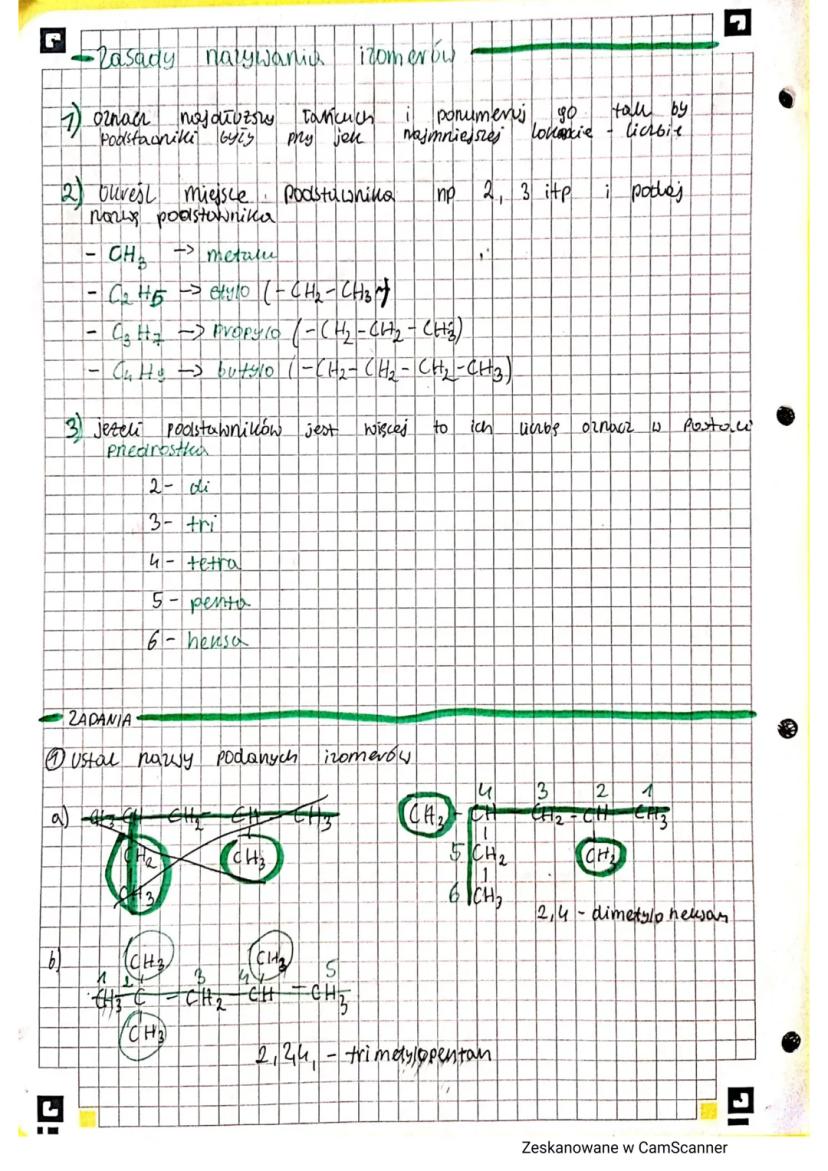 Zasady nazywania izomerów
1) oznacz najdłuższy łańcuch i ponumeruj go tak by
podstawniki były przy jek najmniejszej lokacie - liczbie
2) Określ miejsce podstawnika np 2, 3 itp i podaj
nazwę podstawnika
- CH3 -> metylu
- C2H5 -> etylo (-CH2-CH3)
- C3H7 -> propylo (-CH2-CH2-CH3)
- C4H9 -> butylo (-CH2-CH2-CH2-CH3)
3) jeżeli podstawników jest więcej to ich liczbę oznacz w postaci
przedrostka
2- di
3- tri
4- tetra
5- penta
6- heksa
ZADANIA
① Ustal nazwy podanych izomerów
4 3 2 1
a) CH3 CH CH2 CH CH3 CH3 - CH CH2 - CH CH3
CH2 CH3 5 CH2 CH3
CH3 6 CH3
2,4 - dimetyloheksan
b) CH3 CH3
1 2 3 4 5
CH3 C - CH2 CH - CH3
CH3
2,2,4, - trimetylopentan
Zeskanowane w CamScanner